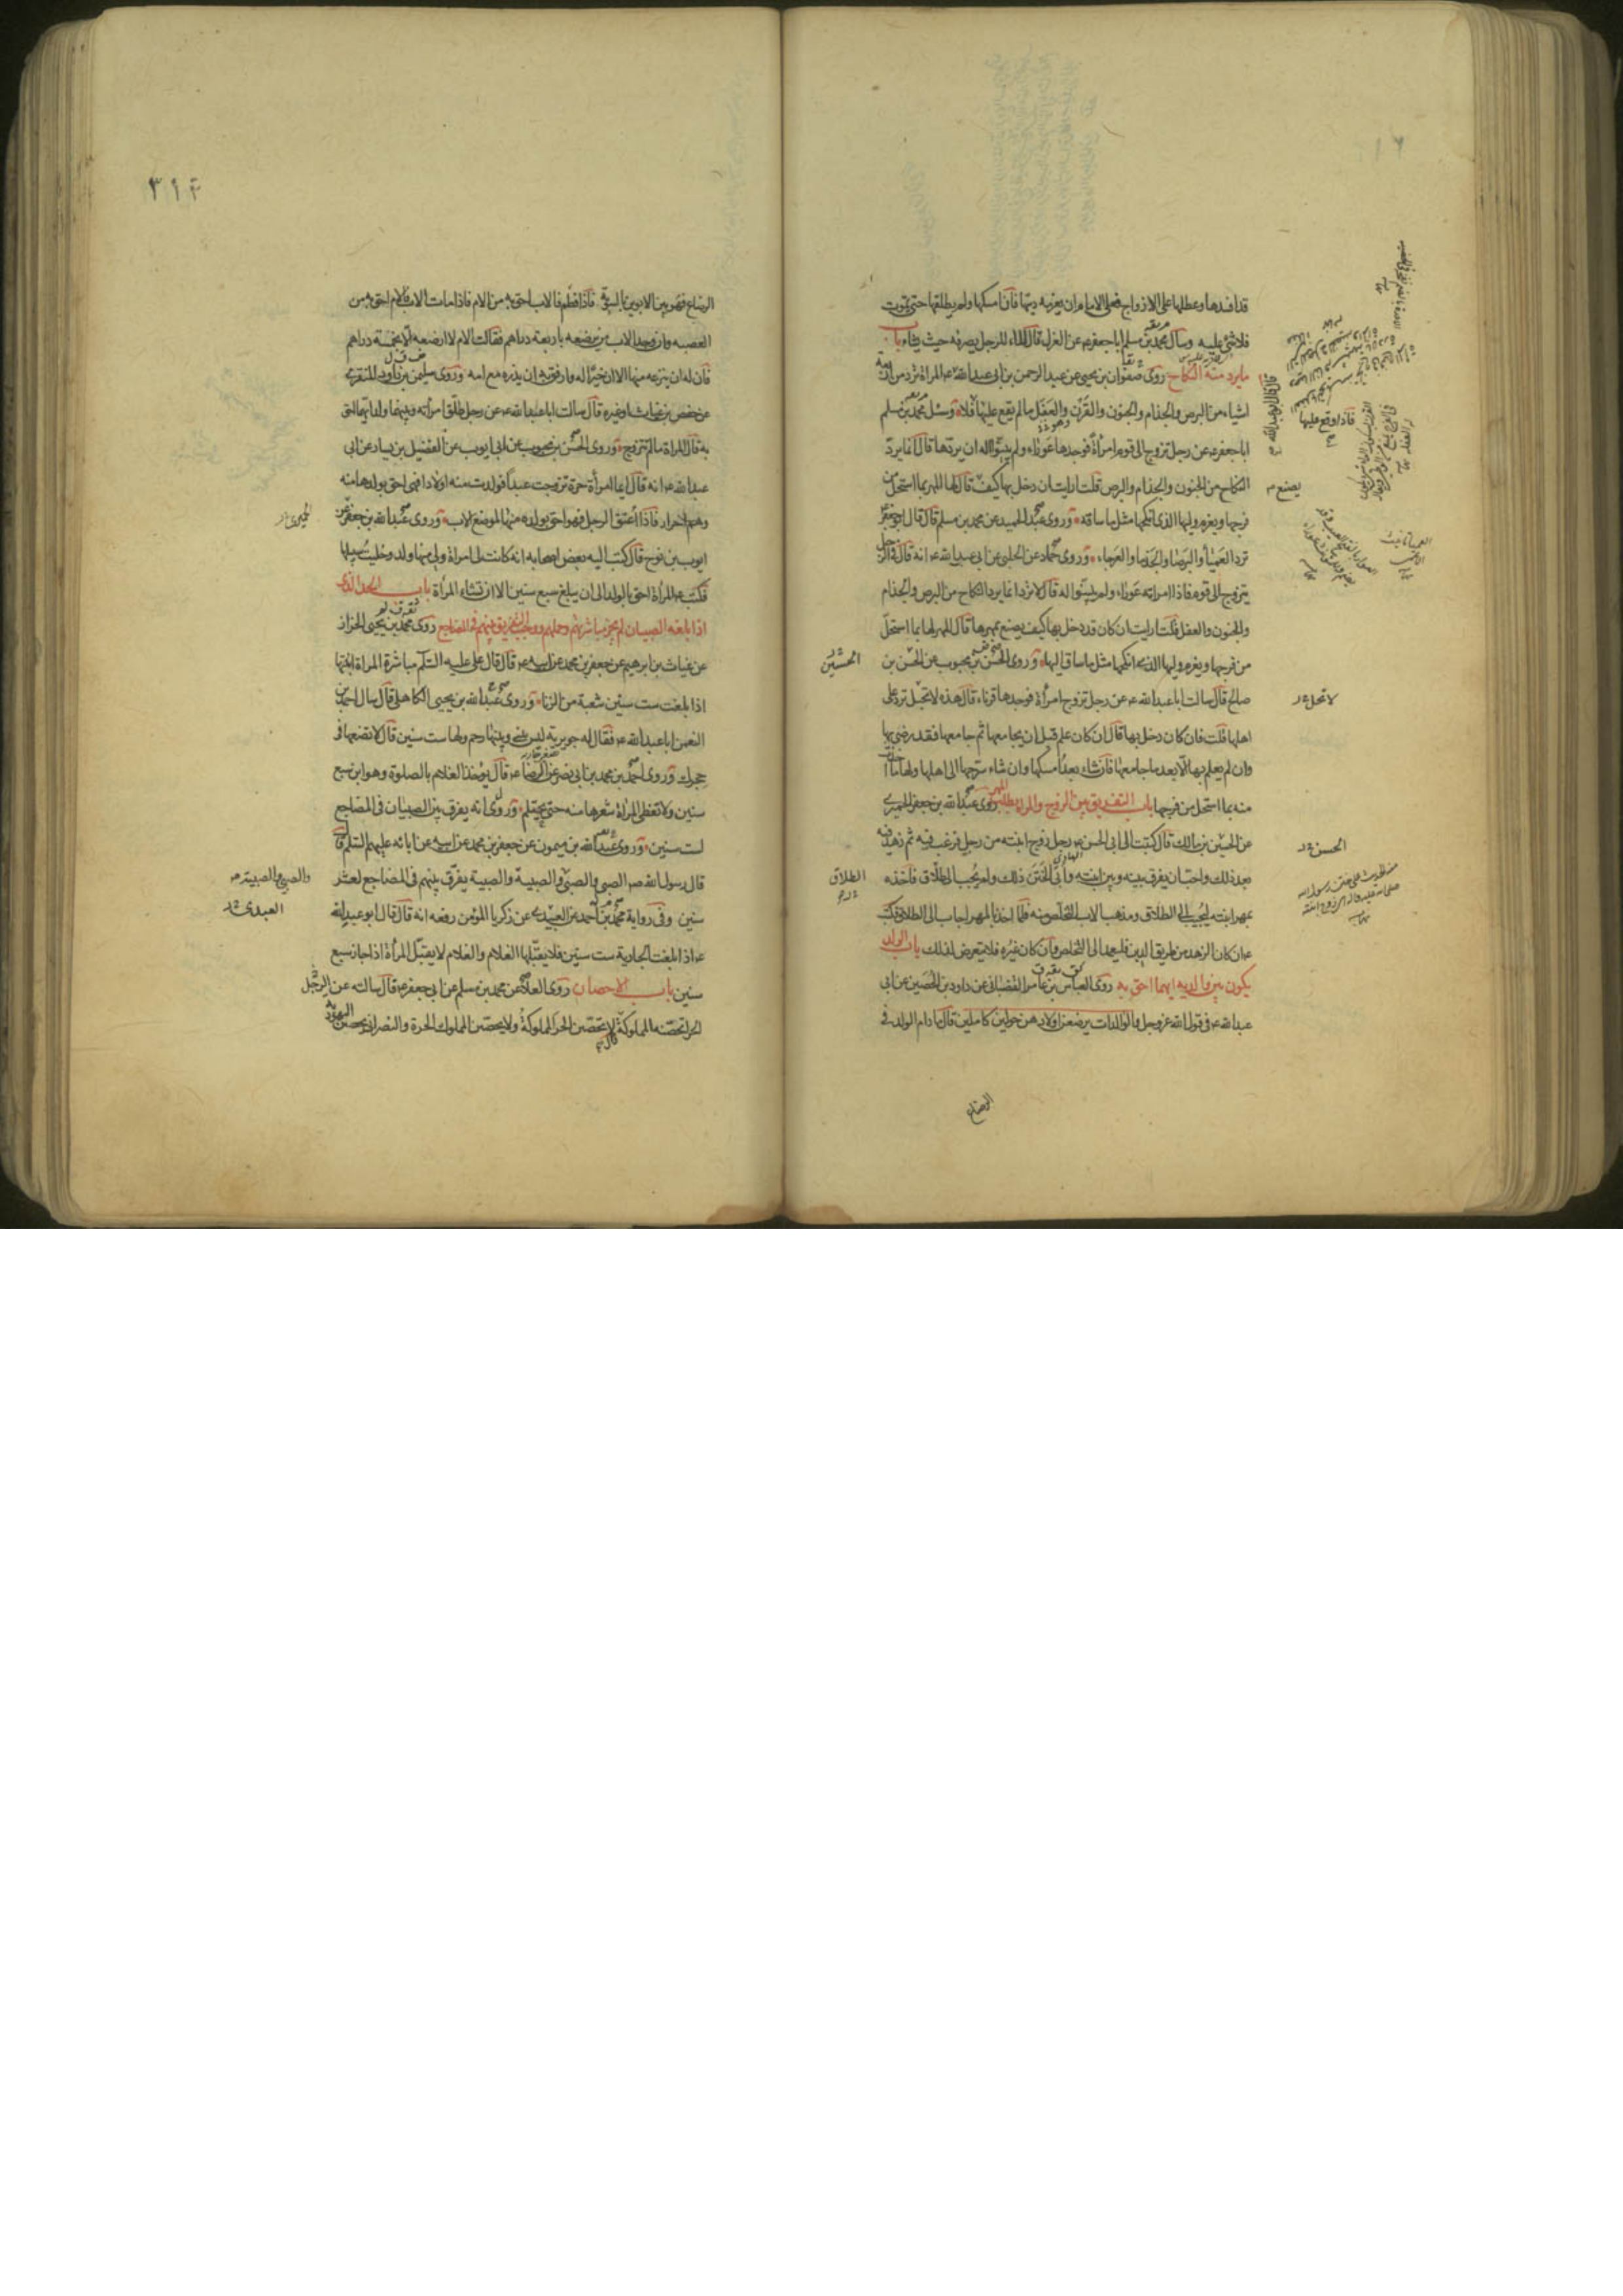 قد افسدها وعطلها على الازواج فعلى الامام ان يغرمه ديتها فان امسكها ولم يطلقها حتى تموت
فلا شئ عليه وسأل محمد بن مسلم ابا جعفر ع عن العزل قال الماء للرجل يصرفه حيث يشاء باب
ما يرد منه النكاح روى صفوان بن يحيى عن عبد الرحمن بن ابى عبد الله عن ابى عبد الله ع المرأة ترد من اربعة
اشياء من البرص والجذام والجنون والقرن والعفل ما لم يقع عليها فلا وسئل محمد بن مسلم
ابا جعفر ع عن رجل تزوج الى قوم امرأة فوجدها عوراء ولم يبينوا له ان يردها قال انما يرد
النكاح من الجنون والجذام والبرص قلت ارايت ان دخل بها كيف قال لها المهر بما استحل من
فرجها ويغرم وليها الذى انكحها مثل ما ساقه وروى عبد الحميد عن محمد بن مسلم قال قال ابو جعفر
ترد العمياء والبرصاء والجذماء والعرجاء وروى حماد عن الحلبى عن ابى عبد الله ع انه قال فى الرجل
يتزوج الى قوم فاذا امرأته عوراء ولم يبينوا له قال لا ترد انما يرد النكاح من البرص والجذام
والجنون والعفل قلت ارايت ان كان قد دخل بها كيف يصنع بمهرها قال المهر لها بما استحل
من فرجها ويغرم وليها الذى انكحها مثل ما ساق اليها وروى الحسن بن محبوب عن الحسن بن
صالح قال سالت ابا عبد الله ع عن رجل تزوج امرأة فوجدها قرناء قال هذه لا تحبل ترد على
اهلها قلت فان كان دخل بها قال ان كان علم قبل ان يجامعها ثم جامعها فقد رضى بها
وان لم يعلم بها الا بعد ما جامعها فان شاء بعد امسكها وان شاء سرحها الى اهلها ولها ما اخذت
منه بما استحل من فرجها باب التفريق بين الزوج والمرأة بطلب المهر روى عبد الله بن جعفر الحميرى
عن الحسين بن مالك قال كتبت الى ابى الحسن ع رجل زوج ابنته من رجل فرغب فيه ثم زهد فيه
بعد ذلك واحب ان يفرق بينه وبين ابنته وأبى الختن ذلك ولم يجب الى طلاق فاخذه
بمهر ابنته ليجيب الى الطلاق ومذهب الاب التخلص منه فلما اخذ بالمهر اجاب الى الطلاق فكتب
ع ان كان الزهد من طريق الدين فليعمد الى التخلص وان كان غيره فلا يتعرض لذلك باب الولد
يكون بين والديه ايهما احق به روى العباس بن عامر القصبانى عن داود بن الحصين عن ابى
عبد الله ع فى قول الله عز وجل والوالدات يرضعن اولادهن حولين كاملين قال ما دام الولد فى
الرضاع
قال قال ابو عبد الله ع
فاذا وقع عليها
يصنع
لا تحل
الحسن
الحسين
الطلاق
٣١٤
الرضاع فهو بين الابوين بالسوية فاذا فطم فالاب احق به من الام فاذا مات الاب فالام احق به من
العصبه وان وجد الاب من يرضعه باربعة دراهم فقالت الام لا ارضعه الا بخمسة دراهم
فان له ان ينزعه منها الا ان خيرا له وارفق به ان يذره مع امه وروى سليمن بن داود المنقرى
عن حفص بن غياث او غيره قال سالت ابا عبد الله ع عن رجل طلق امرأته وبينهما ولد ايهما احق
به قال المرأة ما لم تتزوج وروى الحسن بن محبوب عن ابى ايوب عن الفضيل بن يسار عن ابى
عبد الله ع انه قال ايما امرأة حرة تزوجت عبدا فولدت منه اولادا فهى احق بولدها منه
وهم احرار فاذا اعتق الرجل فهو احق بولده منها لموضع الاب وروى عبد الله بن جعفر عن
ايوب بن نوح قال كتب اليه بعض اصحابه انه كانت لى امرأة ولى منها ولد وخليت سبيلها
فكتب ع المرأة احق بالولد الى ان يبلغ سبع سنين الا ان تشاء المرأة باب الحد الذى
اذا بلغه الصبيان لم يجز مباشرتهم وحملهم ووجب التفريق بينهم فى المضاجع روى محمد بن يحيى الخزاز
عن غياث بن ابرهيم عن جعفر بن محمد عن ابيه ع قال قال على عليه السلم مباشرة المرأة ابنتها
اذا بلغت ست سنين شعبة من الزنا وروى عبد الله بن يحيى الكاهلى قال سال احمد بن
النعمن ابا عبد الله ع فقال له جويرية ليس بينى وبينها رحم ولها ست سنين قال لا تضعها فى
حجرك وروى احمد بن محمد بن ابى نصر عن الرضا ع قال يؤخذ الغلام بالصلوة وهو ابن سبع
سنين ولا تغطى المرأة شعرها منه حتى يحتلم وروى انه يفرق بين الصبيان فى المضاجع
لست سنين وروى عبد الله بن ميمون عن جعفر بن محمد عن ابيه عن ابائه عليهم السلم قال
قال رسول الله ص الصبى والصبى والصبية والصبية يفرق بينهم فى المضاجع لعشر
سنين وفى رواية محمد بن احمد عن العبيدى عن زكريا المؤمن رفعه انه قال قال ابو عبد الله
ع اذا بلغت الجارية ست سنين فلا يقبلها الغلام والغلام لا يقبل المرأة اذا جاز سبع
سنين باب الاحصان روى العلا عن محمد بن مسلم عن ابى جعفر ع قال سالته عن الرجل
الحر اتحصنه المملوكة لا يحصن الحر المملوكة ولا يحصن المملوك الحرة والنصرانى يحصن اليهودية
الحميرى
والصبى والصبية
العبدى